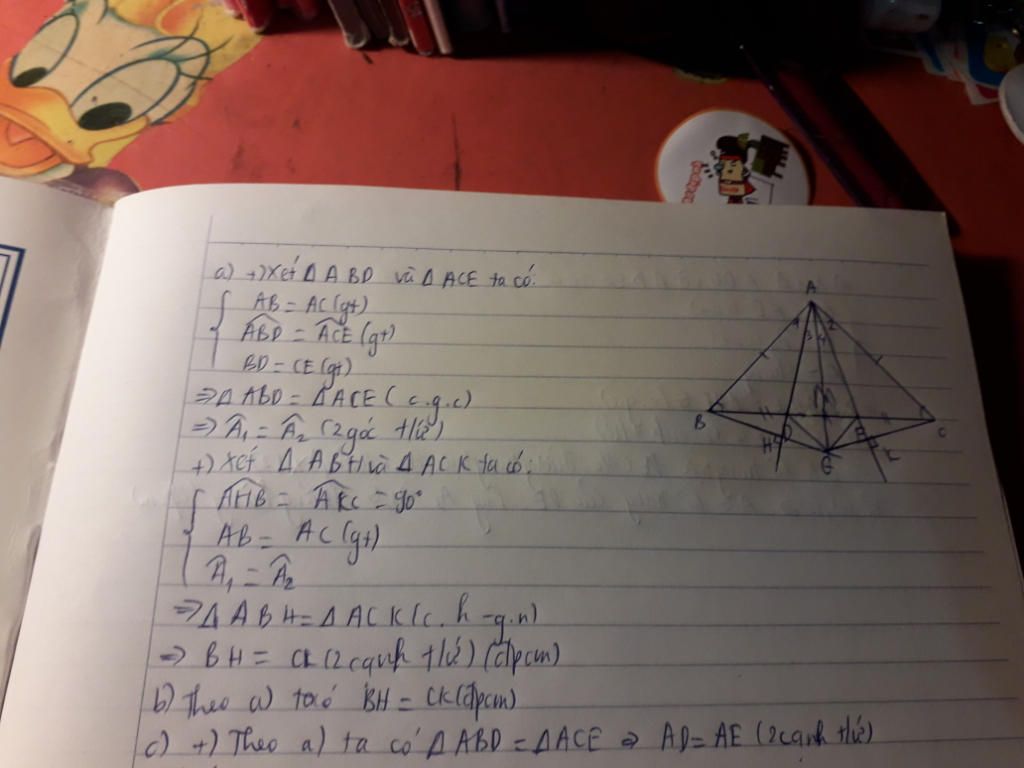 a) +) Xét Δ ABD và Δ ACE ta có:
AB = AC (gt)
\widehat{ABD} = \widehat{ACE} (gt)
BD = CE (gt)
=> Δ ABD = Δ ACE ( c.g.c)
=> \widehat{A}₁ = \widehat{A}₂ (2 góc t/ứ)
+) Xét Δ ABH và Δ ACK ta có:
\widehat{AHB} = \widehat{AKC} = 90°
AB = AC (gt)
\widehat{A}₁ = \widehat{A}₂
=> Δ ABH = Δ ACK (c.h - g.n)
=> BH = CK (2 cạnh t/ứ) (đpcm)
b) Theo a) ta có BH = CK (đpcm)
c) +) Theo a) ta có Δ ABD = Δ ACE => AD = AE (2 cạnh t/ứ)
A
1 3 4 2
B
C
H D
E K
G